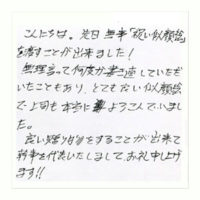 こんにちは。先日無事「祝い似顔絵」
を渡すことが出来ました！
無理言って何度か書き直していただ
いたこともあり、とても良い似顔絵
で上司も本当に よろこんでいまし
た。
良い贈り物をすることが出来て
幹事を代表いたしまして、お礼申し上げ
ます!!